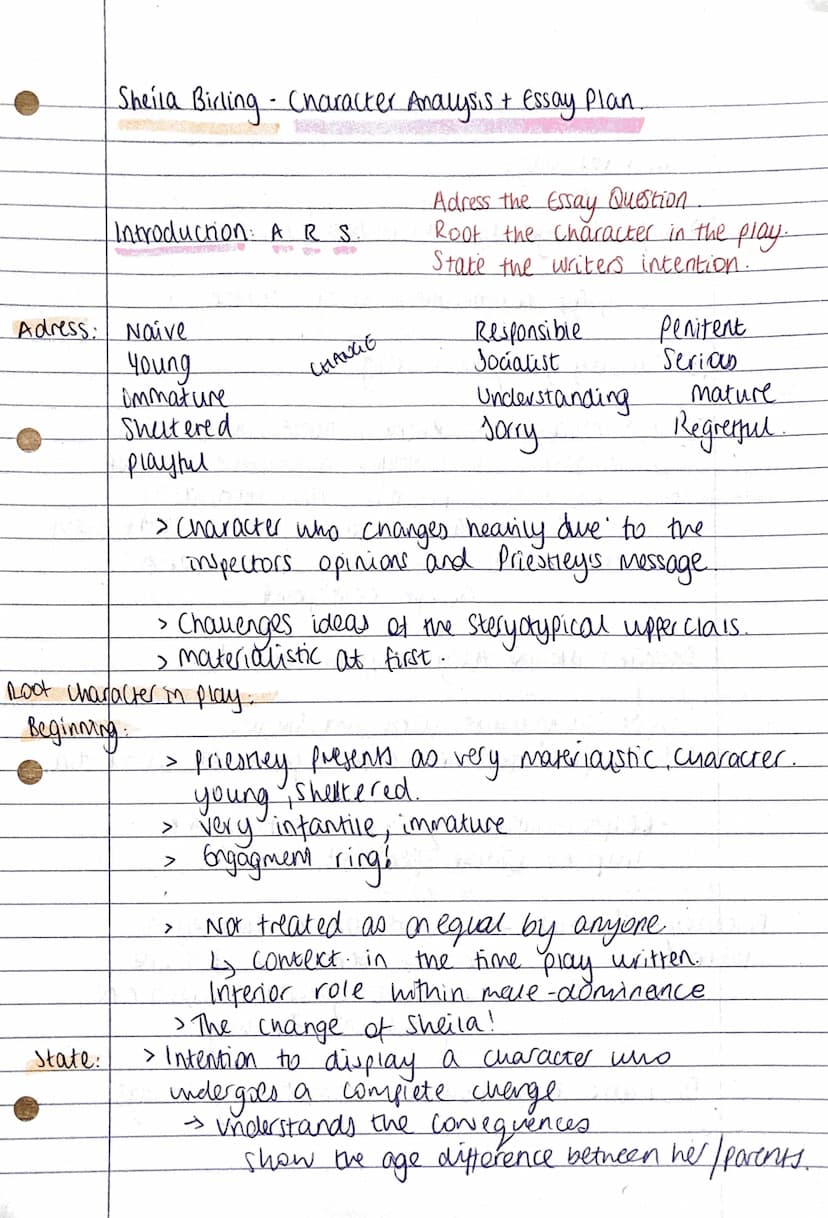 Sheila Birling - Character Analysis + Essay Plan.
Adress the Essay Question.
Introduction: A R S. Root the character in the play.
State the writers intention.
Adress: Naive Responsible Penitent
Young CHANGE Socialist Serious
immature Understanding mature
Sheltered Sorry Regretful.
playful
> Character who changes heavily due to the
inspectors opinions and Priestley's message.
> Challenges ideas of the steryotypical upper class.
> materialistic at first.
Root character in play:
Beginning:
> Priestley presents as very materialistic, character.
young, sheltered.
> very infantile, immature
> Engagment ring!
> Not treated as an equal by anyone
↳ context in the time play written.
Inferior role within male-dominance
> The change of Sheila!
State: > Intention to display a character who
undergoes a complete change
→ understands the consequences
show the age difference between her/parents.